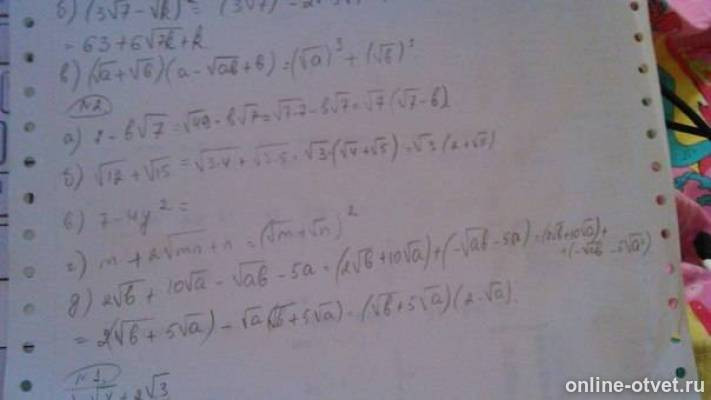 б) (3√7 - √k)² = (3√7)² - 2·3√7
= 63 + 6√7k + k
в) (√a + √b)(a - √ab + b) = (√a)³ + (√b)³
№2
а) 7 - b√7 = √49 - b√7 = √7·7 - b√7 = √7(√7 - b)
б) √12 + √15 = √3·4 + √3·5 = √3·(√4 + √5) = √3(2 + √5)
в) 7 - 4y² =
г) m + 2√mn + n = (√m + √n)²
д) 2√b + 10√a - √ab - 5a = (2√b + 10√a) + (-√ab - 5a) = (2√b + 10√a) +
+ (-√ab - 5√a²)
= 2(√b + 5√a) - √a(√b + 5√a) = (√b + 5√a)(2 - √a).
+ 2√3
online-otvet.ru